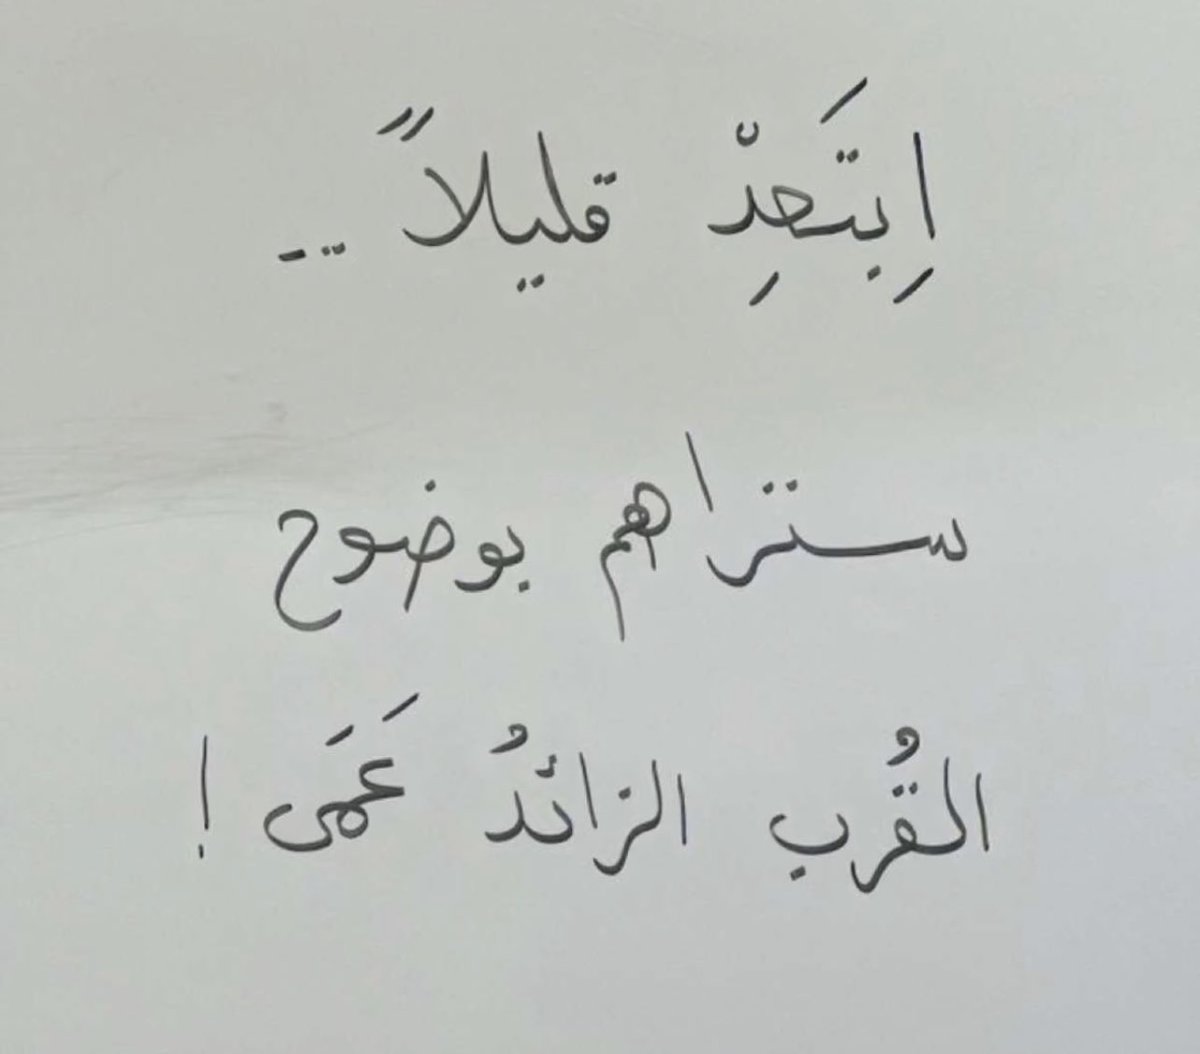 اِبتَعِدْ قليلاً ...
ستراهم بوضوح
القُرب الزائدُ عَمَى !